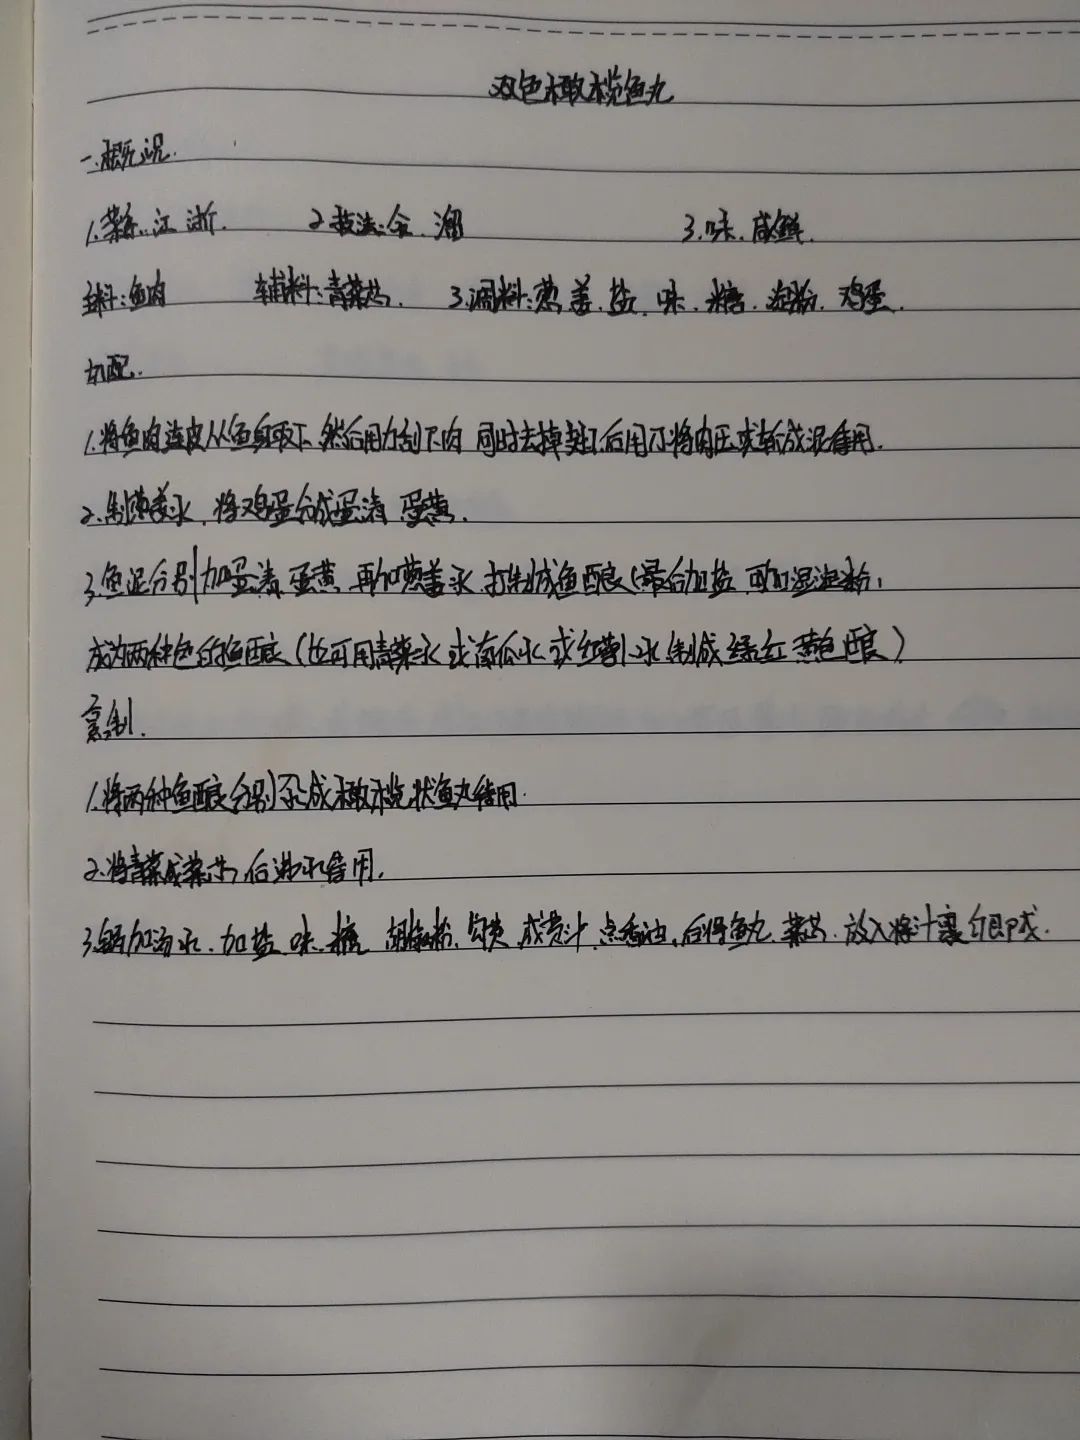 双色橄榄鱼丸
一.概况.
1.菜系:江浙. 2.技法:氽.溜 3.味.咸鲜.
主料:鱼肉 辅料:青菜芯. 3.调料:葱姜.盐.味.糖.淀粉.鸡蛋.
切配.
1.将鱼肉连皮从鱼身取下.然后用力刮下肉 同时去掉 后用刀将肉压或斩成泥备用.
2.制葱姜水.将鸡蛋分成蛋清.蛋黄.
3.鱼泥分别加蛋清.蛋黄.再加葱姜水.打制成鱼酿(最后加盐.可加湿淀粉,
成为两种色的鱼酿(也可用青菜水或南瓜水或红萝卜水制成绿红黄色酿)
烹制.
1.将两种鱼酿分别氽成橄榄状鱼丸备用.
2.将青菜成菜芯,后沸水备用.
3.锅加汤水.加盐.味.糖 胡椒粉.勾芡.成荧汁.点香油.后将鱼丸.菜芯.放入将汁裹匀即成.